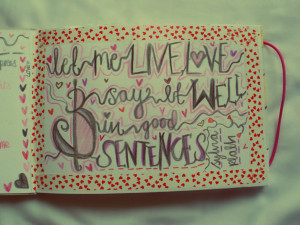 let me LIVE, LOVE
& say it WELL
in good
SENTENCES
Sylvia
Plath